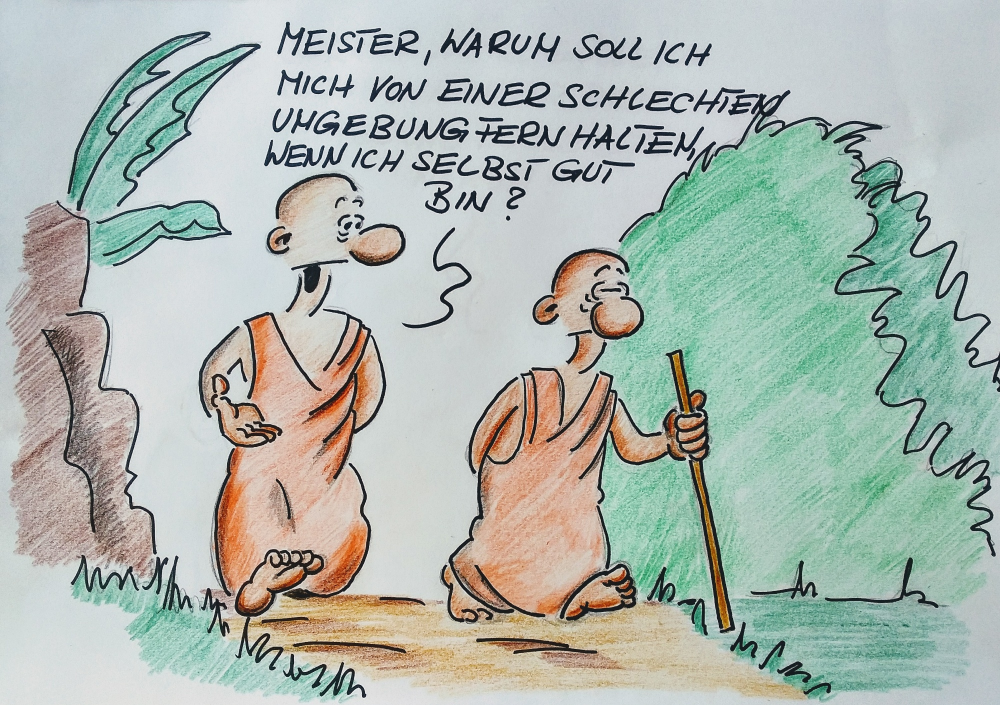 MEISTER, WARUM SOLL ICH
MICH VON EINER SCHLECHTEN
UMGEBUNG FERN HALTEN,
WENN ICH SELBST GUT
BIN?